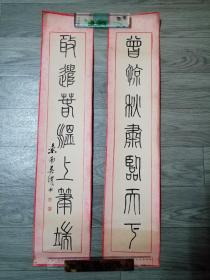 曾惊秋肃临天下
敢遣春温上笔端